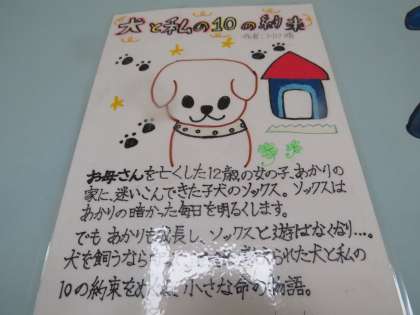 犬と私の10の約束
作者:川口晴
お母さんを亡くした12歳の女の子、あかりの
家に、迷いこんできた子犬のソックス。ソックスは
あかりの暗かった毎日を明るくします。
でも あかりも成長し、ソックスと遊ばなくなり…。
犬を飼うなら られた犬と私の
10の約束をめぐる 小さな命の物語。